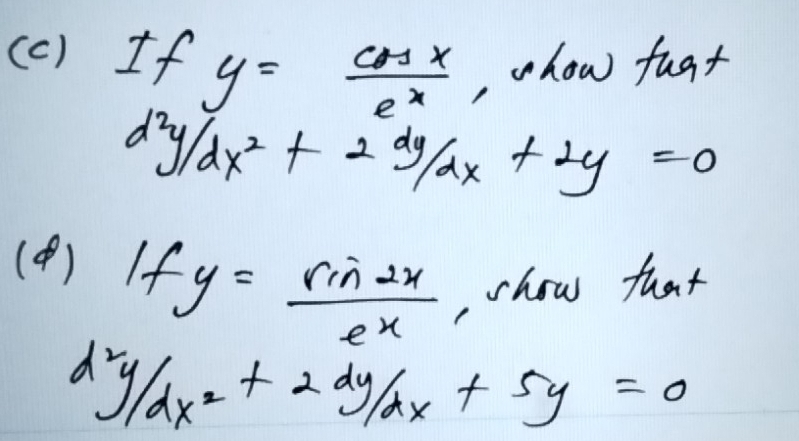 (c) If y = cos x / e^x , show that
d²y/dx² + 2 dy/dx + 2y = 0
(d) If y = sin 2x / e^x , show that
d²y/dx² + 2 dy/dx + 5y = 0